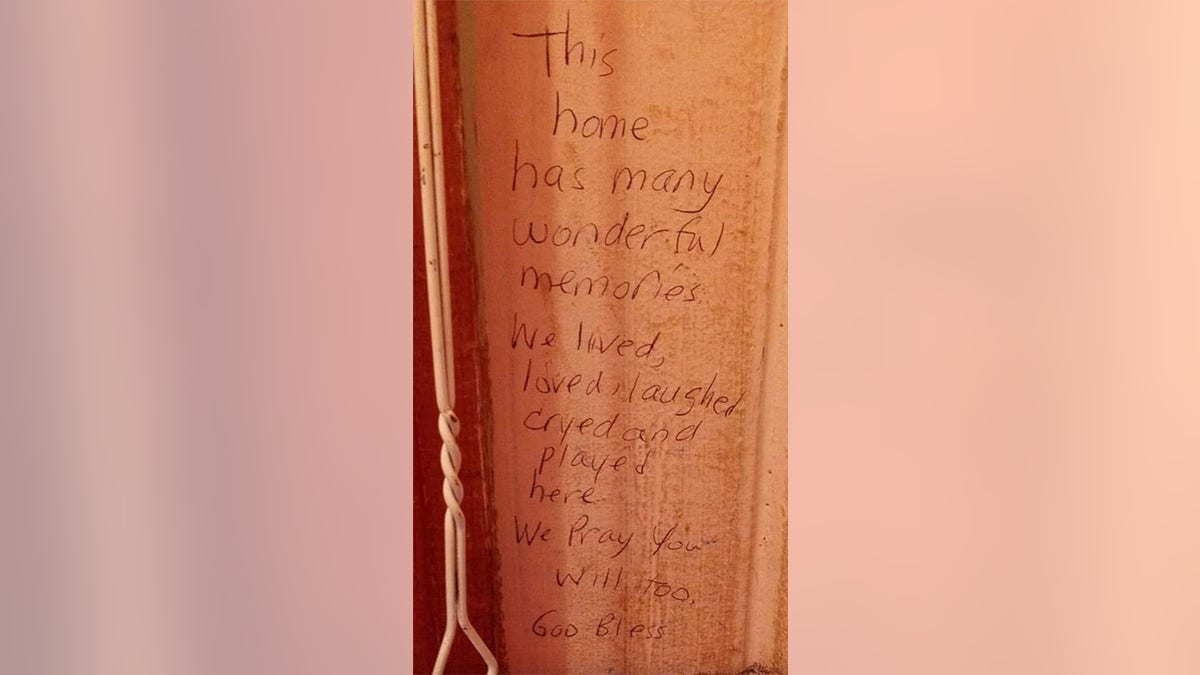 This
home
has many
wonderful
memories.
We lived,
loved, laughed
cryed and
played
here
We Pray You
will too.
God Bless